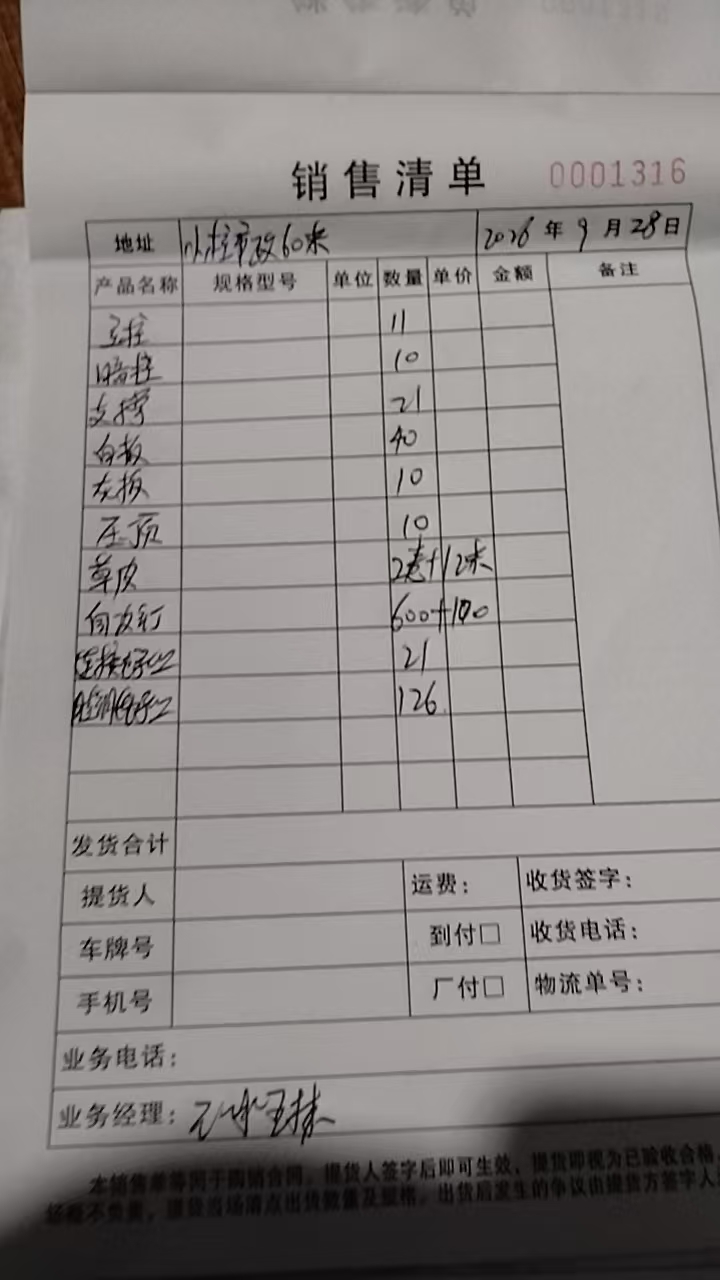 销售清单 0001316
地址 小柱市政60米 2026年9月28日
产品名称 规格型号 单位 数量 单价 金额 备注
立柱 11
暗柱 10
支撑 21
白板 40
灰板 10
压顶 10
草皮 2卷+12米
自攻钉 600+100
21
126
发货合计
提货人 运费: 收货签字:
车牌号 到付□ 收货电话:
手机号 厂付□ 物流单号:
业务电话:
业务经理:
本销售单等同于购销合同,提货人签字后即可生效,提货即视为已验收合格,
不负责,提货当场清点出货数量及规格,出货后发生的争议由提货方签字人